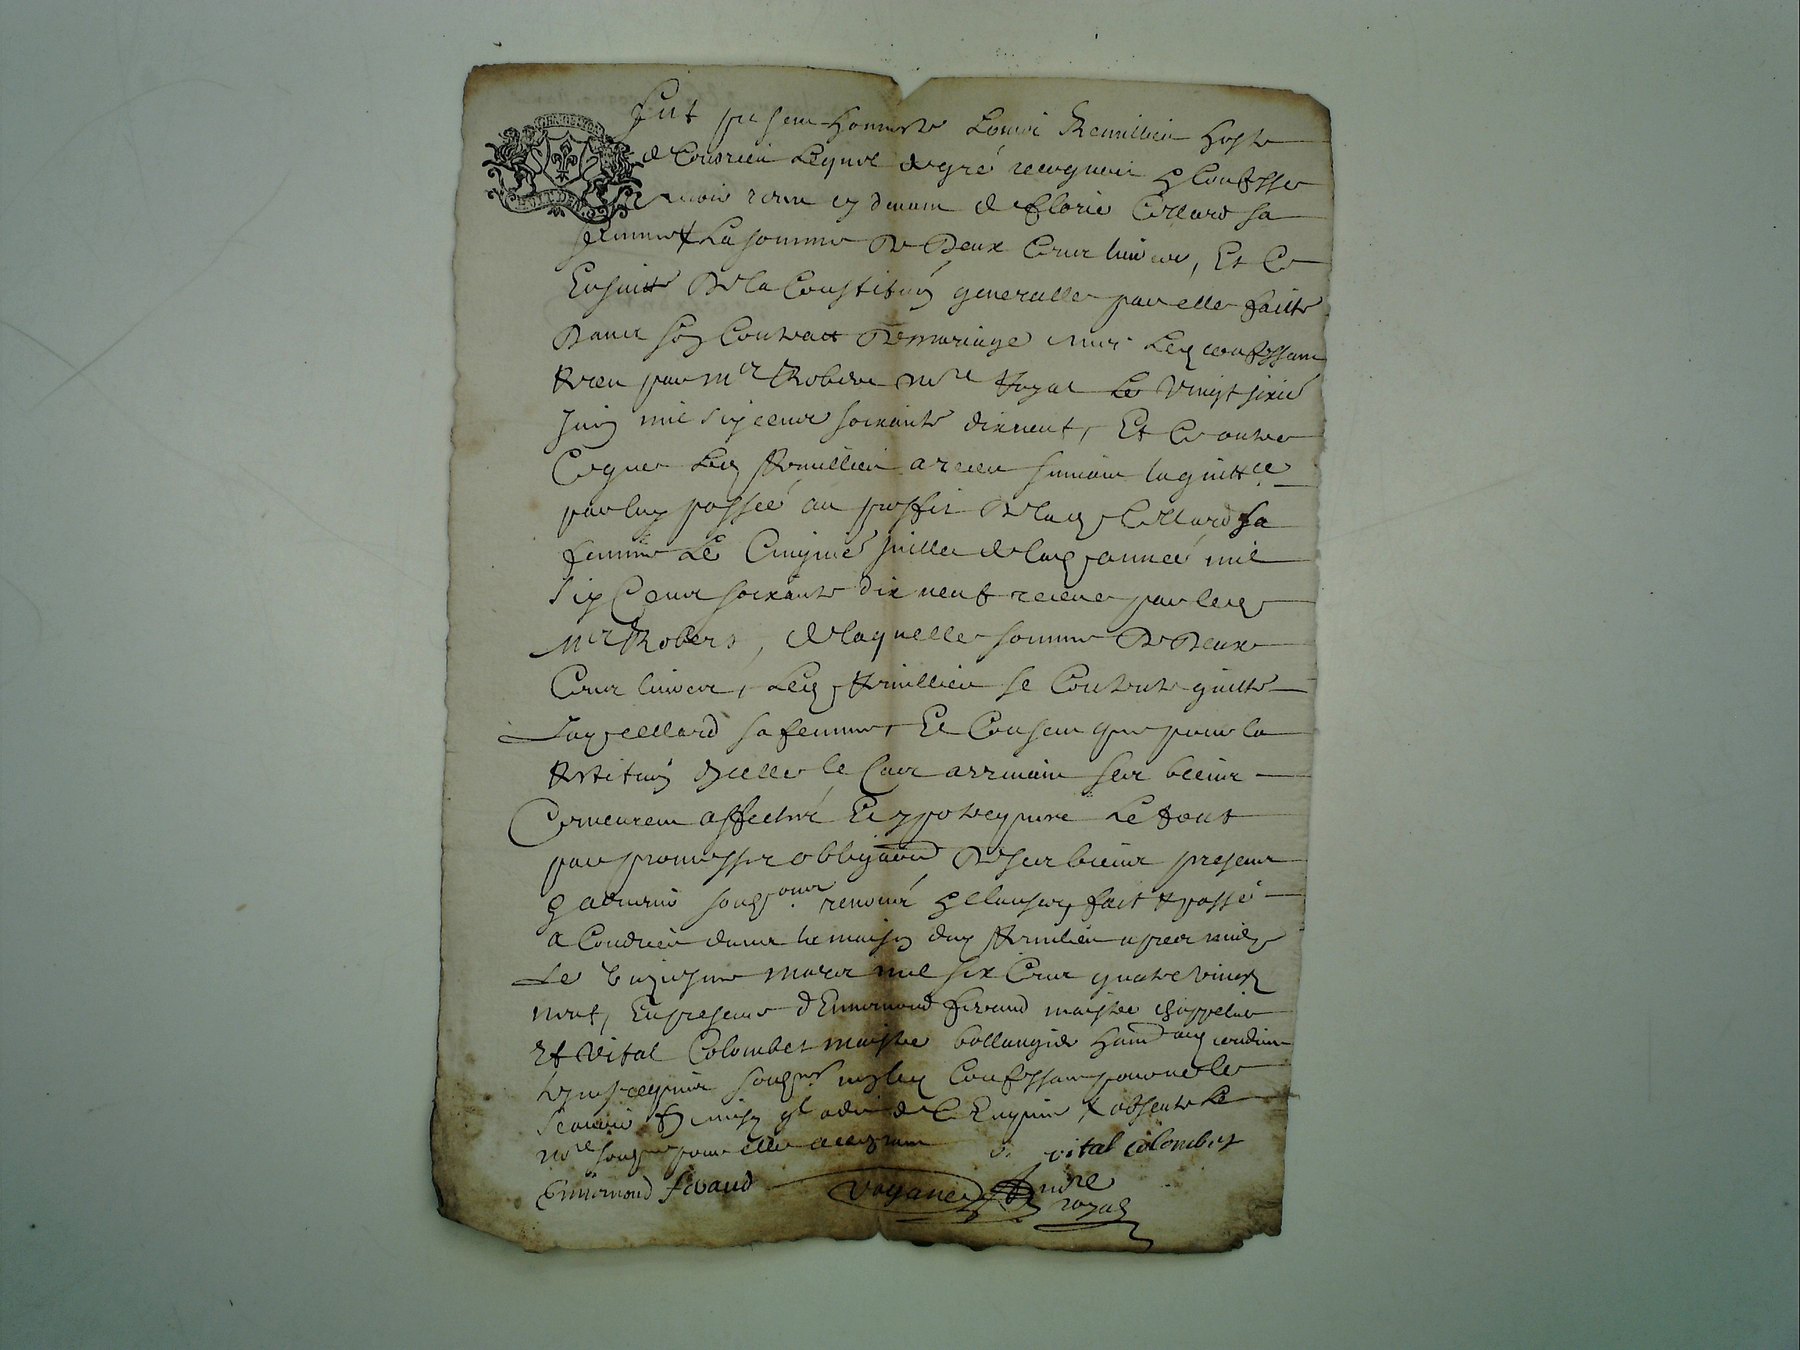 Fut present honneste Louis Remillieu hoste
de Coudrieu Lequel de gré recognoit & Confesse
avoir receu cy devant de Clorie Collard sa
femme La somme De Deux Cent livres, Et Ce
Ensuitte De la Constitu͠on generalle par elle faitte
Dans son Contratt De mariage avec Led confessant
Receu par Mr Robert nore Royal Le vingt sixie
Juin mil six cent soixante dix neuf, Et Ce outre
Ce que Led Remillieu a receu suivant la quittce
par luy passée au proffit De lad Collard sa
femme Le Cinquie Juillet de lad année mil
six Cent soixante dix neuf receue par led
Mr Robert, de laquelle somme De Deux
Cent livres, Led Remillieu se Contente quitte
Lad Collard sa femme, Et Consent que pour la
Restitu͠on d'jcelle le Cas arrivant ses biens
Demeurent affectés Et ypotequés Le tout
par promesses obligation De ses biens presens
& advenir soubs.ons renonc & clauses, fait & passé
a Coudrieu dans la maison dud Remilieu apres midy
Le mars mil six Cent quatre vingt
neuf, En presence d'Ennemond fivaud maistre Chappelier
Et Vital Colombet maistre bollangier habitants aud Coudrieu
tesmoins requis soubsnes non led Confessant pour ne le
scavoir de ce Enquis & absente Le
nore soubsne pour elle acceptant vital colombet
Ennemond fivaud Voyane nore
royal